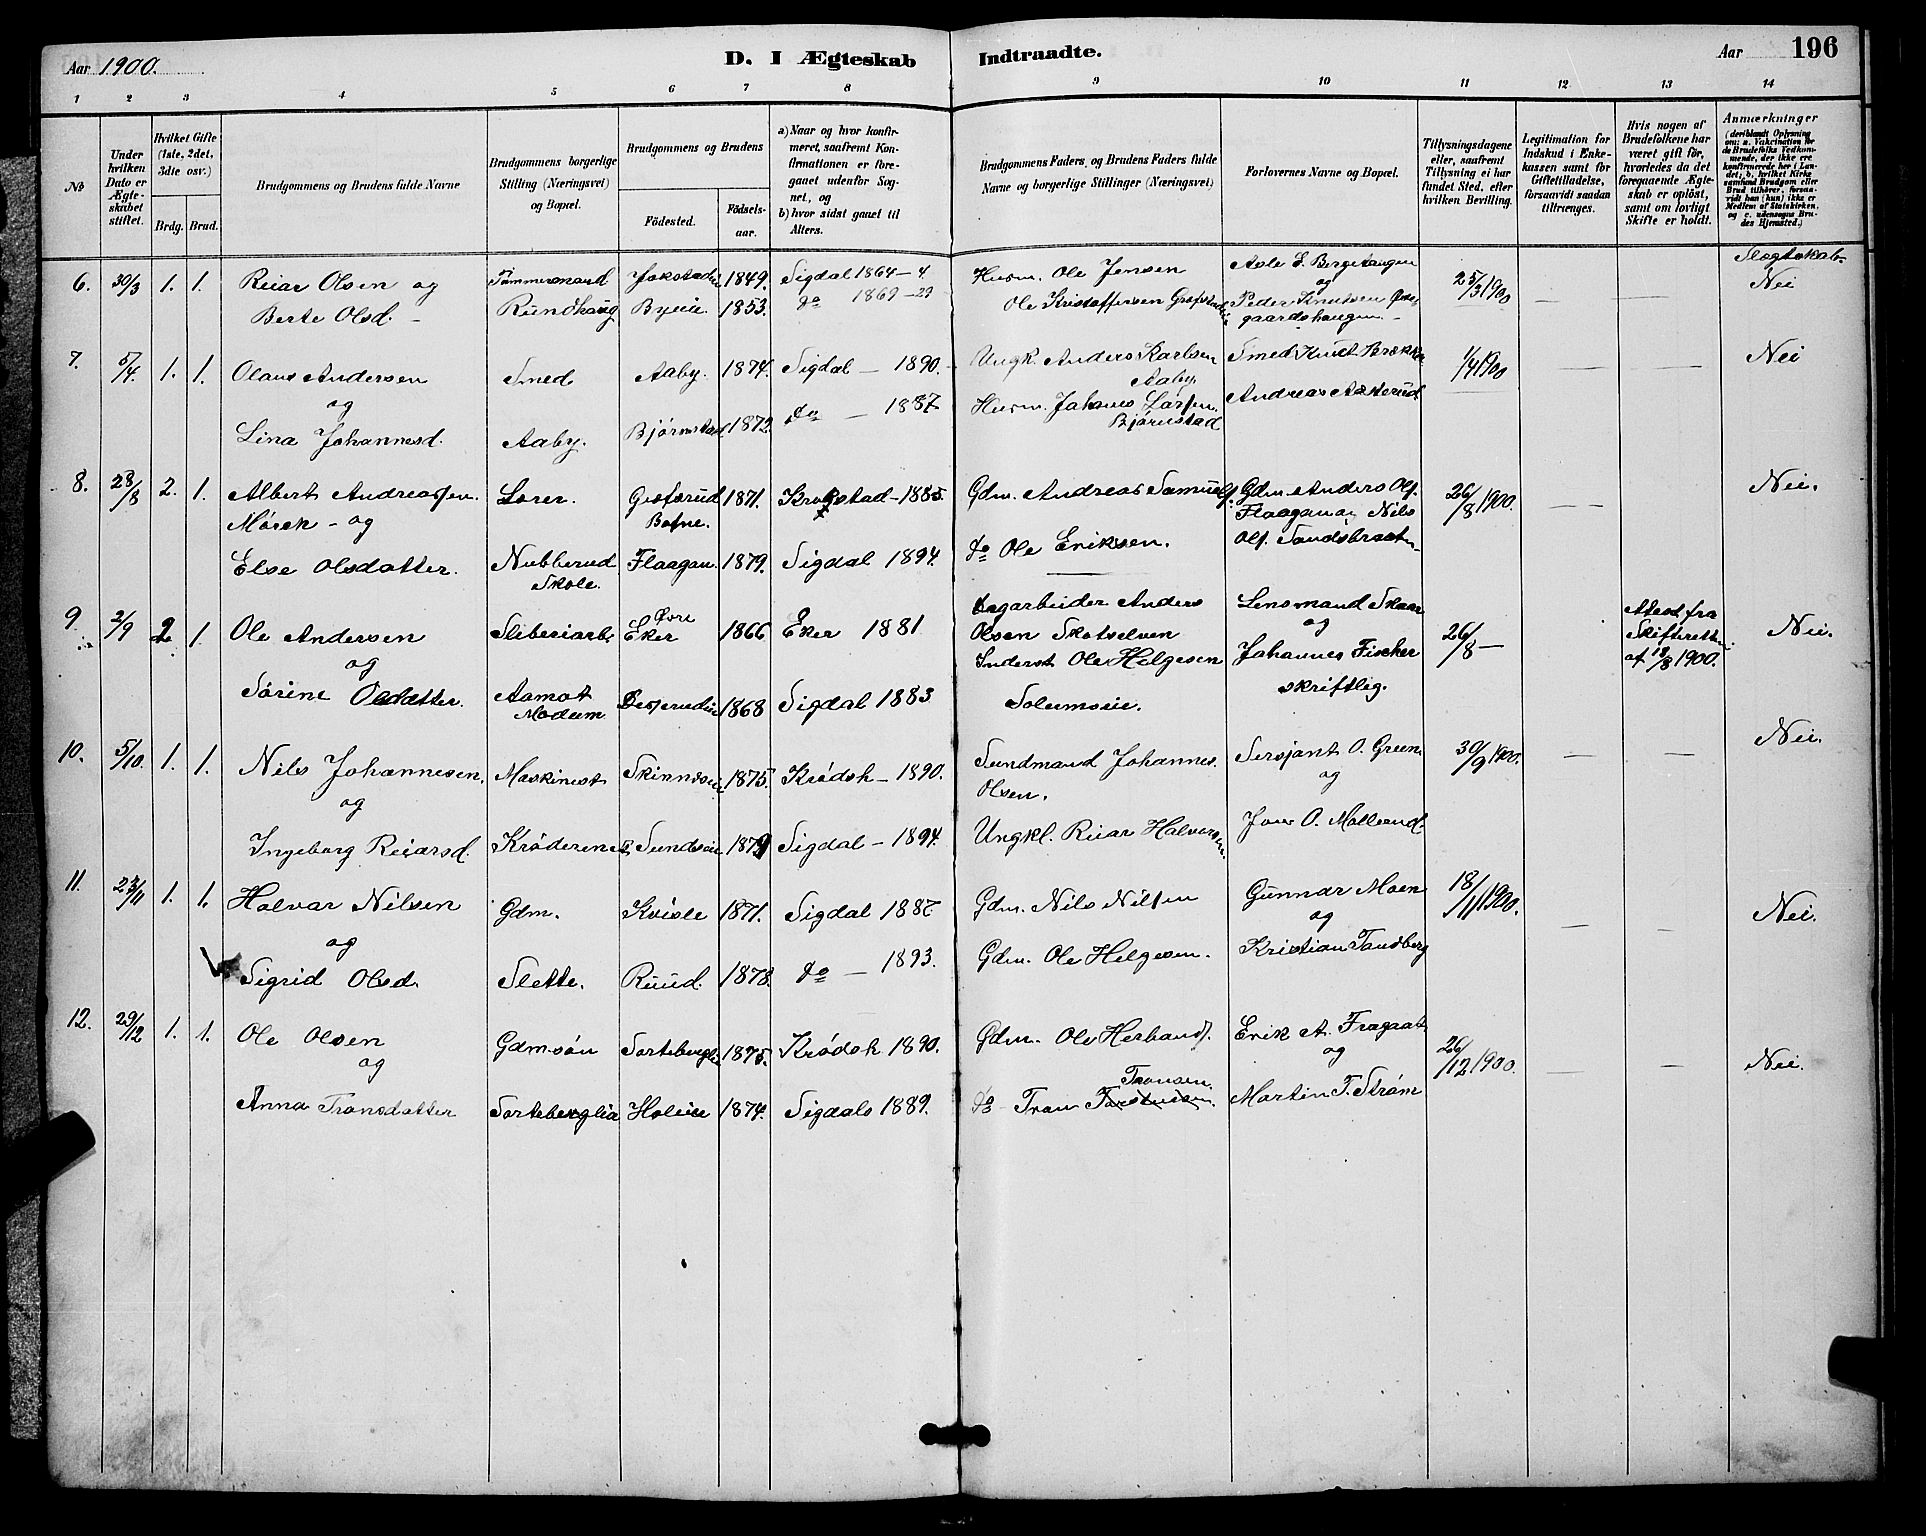 Aar 1900.
D. I Ægteskab Indtraadte.
Aar 196
1 2 3 4 5 6 7 8 9 10 11 12 13 14
No
Under hvilken Dato er Ægteskabet stiftet.
Hvilket Gifte (1ste, 2det, 3die osv.)
Brdg. Brud.
Brudgommens og Brudens fulde Navne
Brudgommens borgerlige Stilling (Næringsvei) og Bopæl.
Brudgommens og Brudens
Födested.
Födselsaar.
a) Naar og hvor konfirmeret, saafremt Konfirmationen er foregaaet udenfor Sognet, og
b) hvor sidst gaaet til Alters.
Brudgommens Faders, og Brudens Faders fulde Navne og borgerlige Stillinger (Næringsvei)
Forlovernes Navne og Bopæl.
Tillysningsdagene eller, saafremt Tillysning ei har fundet Sted, efter hvilken Bevilling.
Legitimation for Indskud i Enkekassen samt for Giftetilladelse, forsaavidt saadan tiltrænges.
Hvis nogen af Brudefolkene har været gift för, hvorledes da det foregaaende Ægteskab er oplöst, samt om lovligt Skifte er holdt.
Anmærkninger
(deriblandt Oplysning om: a. Vakcination for de Brudefolks Vedkommende, der ikke ere konfirmerede her i Landet; b. hvilket Kirkesamfund Brudgom eller Brud tilhörer, forsaavidt han (hun) ikke er Medlem af Statskirken, og c. udensogns Brudes Hjemsted.)
Slegtskab
6. 30/3 1. 1. Reiar Olsen og Tømmermand 1849. Sigdal 1864 - 4 Husm. Ole Jensen 25/3 1900 Nei
Berte Olsd. Rundhaug Byeie. 1853. do 1869 - 23 Ole Kristoffersen
og
Peder Knutsen
7. 5/4. 1. 1. Olaus Andersen Smed Aaby. 1874. Sigdal — 1890. Ungk. Anders Karlsen Smed Knut Brekke 1/4 1900 Nei
og Aaby.
Lina Johannesd. Aaby. Bjørnstad 1872. do — 1887 Husm. Johanes Larsen Andreas
Bjørnstad
8. 28/8 2. 1. Albert Andreassen Lærer. 1871. 1885. Gdm. Andreas Samuels. Gdm. Anders Ols. 26/8 1900. Nei.
Mørch - og Flaagan og Nils
Else Olsdatter. Nubberud Flaagan 1879. Sigdal 1894. do Ole Eriksen. Ols. Sandsbraaten
Skole.
9 2/9 2 1. Ole Andersen Sliberiarb. Øvre Eker 1866 Eker 1881 Dagarbeider Anders Lensmand Skaar 26/8 — Attest fra Nei.
og Olsen Skotselven og Skifteretten
Sørine Olsdatter. Aamot 1868 Sigdal 1883 Inderst Ole Helgesen Johannes Fischer af 18/8 1900.
Modum Solumseie. skriftlig.
10. 5/10. 1. 1. Nils Johannesen. Maskinist 1875. Krødsh - 1890. Sundmand Johannes Sersjant O. Green 30/9 1900. Nei.
og Olsen. og
Ingeborg Reiarsd. Krøderen Sundseie 1879 Sigdal - 1894. Ungkl. Reiar Halvorsen.
11. 23/11 1. 1. Halvar Nilsen Gdm. Kvisle 1871. Sigdal 1887 Gdm. Nils Nilsen Gunnar Moen 18/11 1900. Nei.
og og
Sigrid Olsd. Slette. Ruud. 1878. do — 1893. Gdm. Ole Helgesen. Kristian Tandberg
12. 29/12 1. 1. Ole Olsen Gdm.søn 1875. Krødsh 1890. Gdm. Ole Herbands. Erik A. 26/12 1900. Nei.
og Tronsen. og
Anna Tronsdatter Sorteberglia Holeie 1874. Sigdals 1889. do Tron Martin T. Strøm